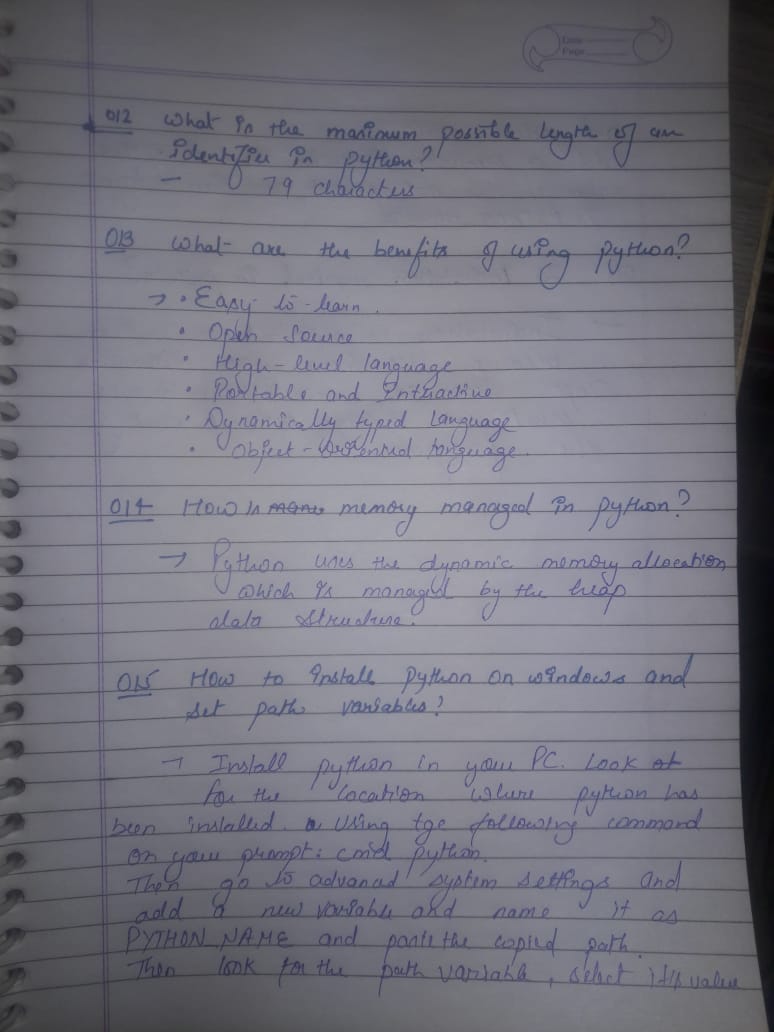 Date
Page
Q12 What is the maximum possible length of an
identifier in python?
— 79 characters
Q13 What are the benefits of using python?
→ • Easy-to-learn.
• Open Source
• High-level language
• Portable and Interactive
• Dynamically typed Language
• Object-Oriented language.
Q14 How is memory managed in python?
→ Python uses the dynamic memory allocation
which is managed by the heap
data structure.
Q15 How to install python on windows and
set path variables?
→ Install python in your PC. Look at
for the location where python has
been installed. Using tge following command
on your prompt: cmd python.
Then go to advanced system settings and
add a new variable and name it as
PYTHON_NAME and paste the copied path.
Then look for the path variable, select it's value